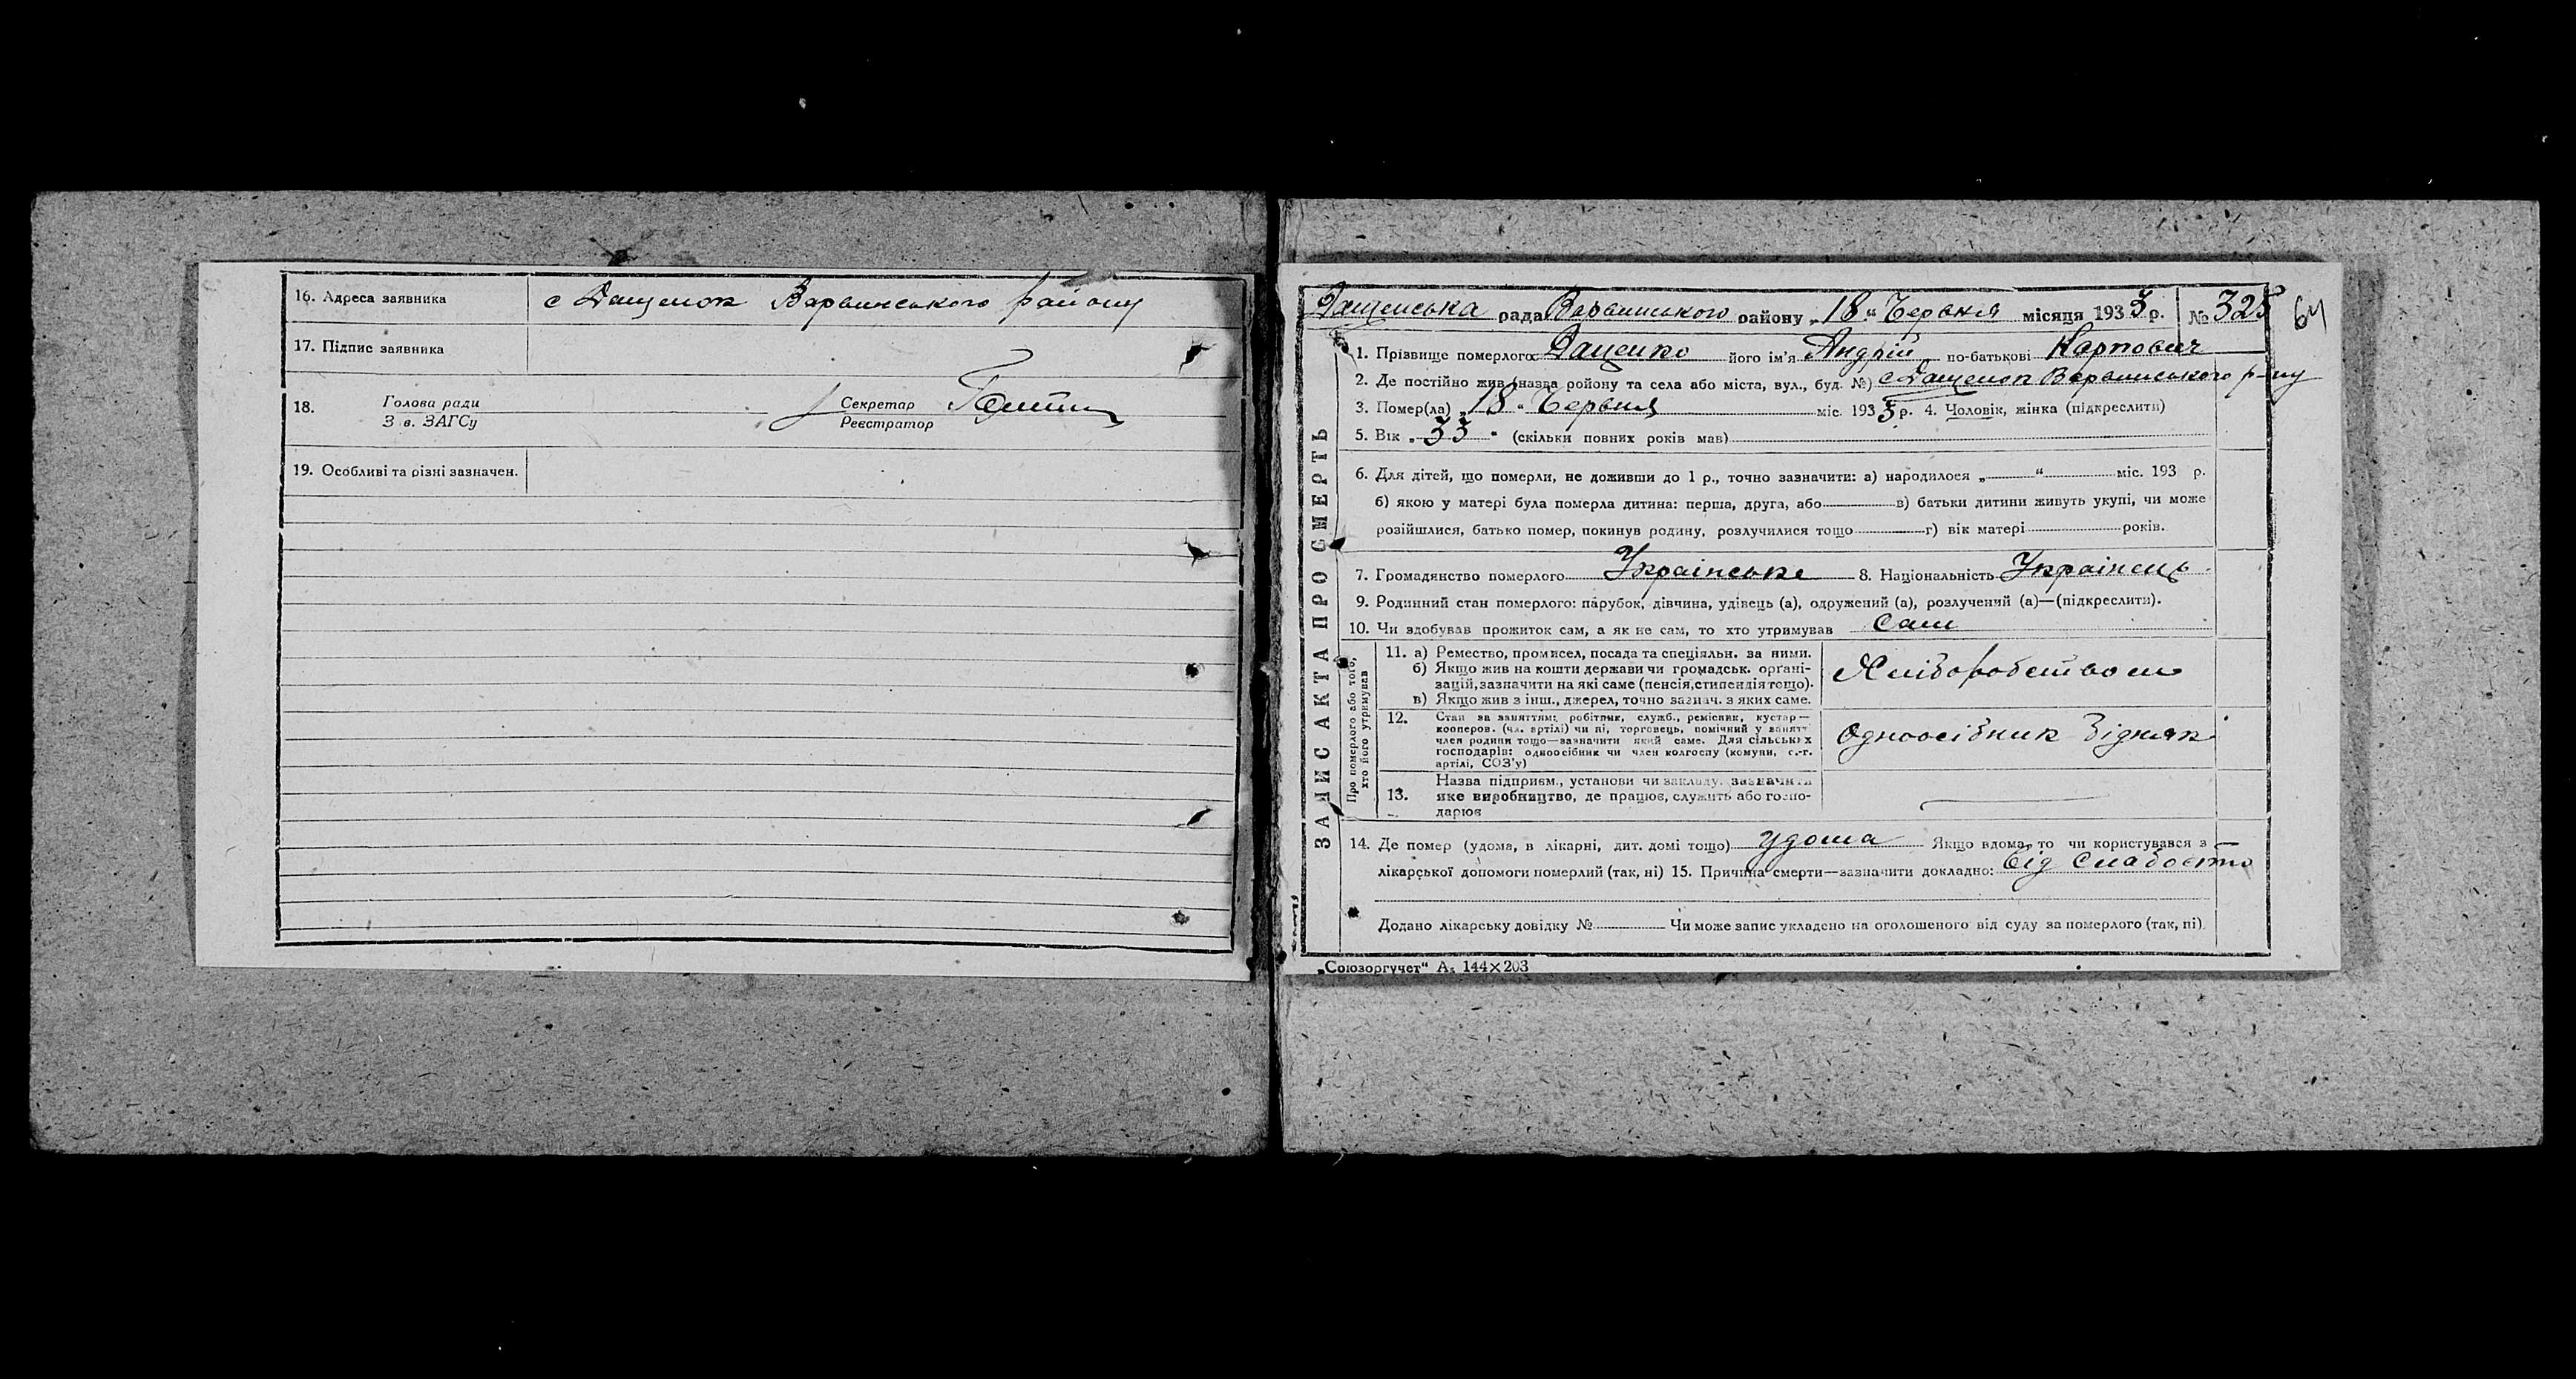 16. Адреса заявника с Дащенок Варвинського району
17. Підпис заявника
18. Голова ради Секретар
З в. ЗАГСу Реєстратор
19. Особливі та різні зазначен.
Дащенська рада Варвинського району „18“ Червня місяця 1933 р. № 325
64
ЗАПИС АКТА ПРО СМЕРТЬ
1. Прізвище померлого Даценко його ім'я Андрій по-батькові Карпович
2. Де постійно жив (назва ройону та села або міста, вул., буд. №) с Дащенок Варвинського р-ну
3. Помер(ла) „18“ Червня міс. 1933 р. 4. Чоловік, жінка (підкреслити)
5. Вік „33“ (скільки повних років мав)
6. Для дітей, що померли, не доживши до 1 р., точно зазначити: а) народилося „ “ міс. 193 р.
б) якою у матері була померла дитина: перша, друга, або в) батьки дитини живуть укупі, чи може
розійшлися, батько помер, покинув родину, розлучилися тощо г) вік матері років.
7. Громадянство померлого Українське 8. Національність Українець
9. Родинний стан померлого: парубок, дівчина, удівець (а), одружений (а), розлучений (а)—(підкреслити).
10. Чи здобував прожиток сам, а як не сам, то хто утримував Сам
Про померлого або того,
хто його утримував
11. а) Ремество, промисел, посада та спеціяльн. за ними.
б) Якщо жив на кошти держави чи громадськ. органі-
зацій, зазначити на які саме (пенсія, стипендія тощо).
в) Якщо жив з інш., джерел, точно зазнач. з яких саме.
Хліборобством
12. Стан за заняттям: робітник, служб., ремісник, кустар—
кооперов. (чл. артілі) чи ні, торговець, помічний у занятт
член родини тощо—зазначити який саме. Для сільських
господарів: одноосібник чи член колгоспу (комуни, с.-г.
артілі, СОЗ'у)
Одноосібник Бідняк
Назва підприєм., установи чи закладу, зазначити
13. яке виробництво, де працює, служить або госпо-
дарює
14. Де помер (удома, в лікарні, дит. домі тощо) удома Якщо вдома, то чи користувався з
лікарської допомоги померлий (так, ні) 15. Причина смерти—зазначити докладно: Від Слабости
Додано лікарську довідку № Чи може запис укладено на оголошеного від суду за померлого (так, ні).
„Союзоргучет“ А5 144×203